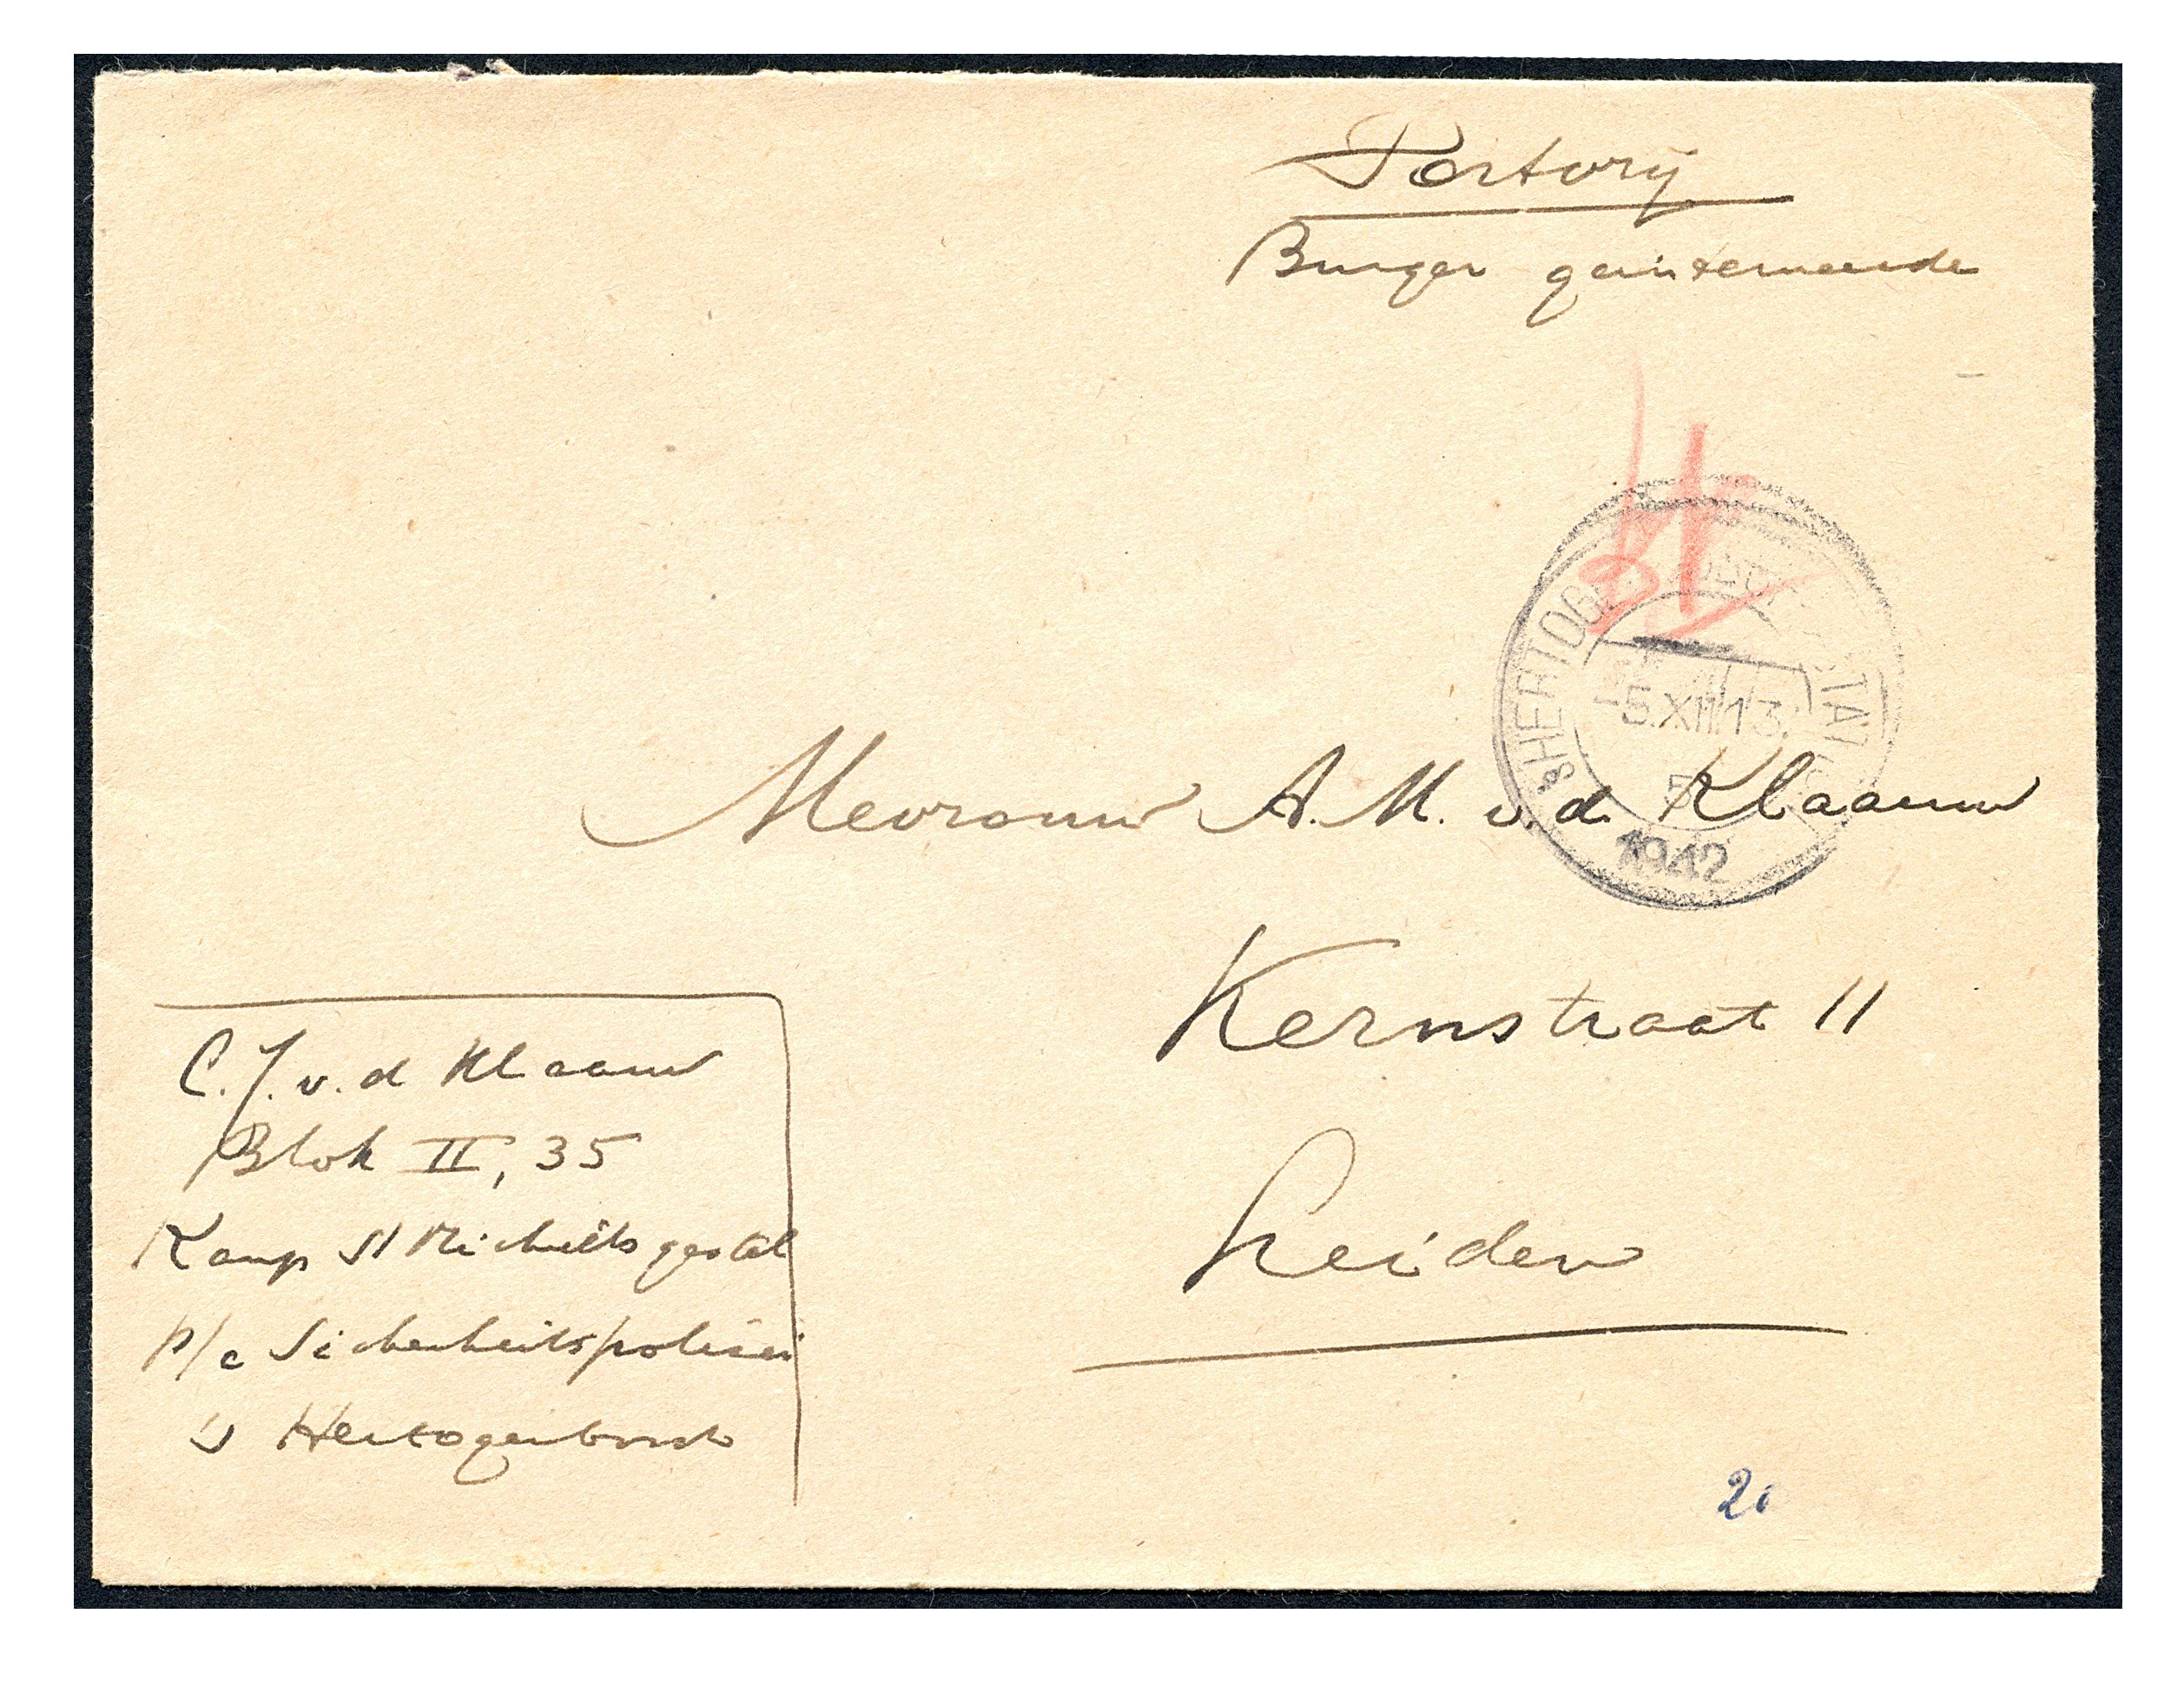 Portvrij
Burger geinterneerde
'sHERTOG
5.XII.13.
1942
Mevrouw A. M. v. d. Klaauw
Kernstraat 11
Leiden
C. J. v. d Klaauw
Blok II, 35
Kamp St Michielsgestel
p/a Sicherheitspolizei
's Hertogenbosch